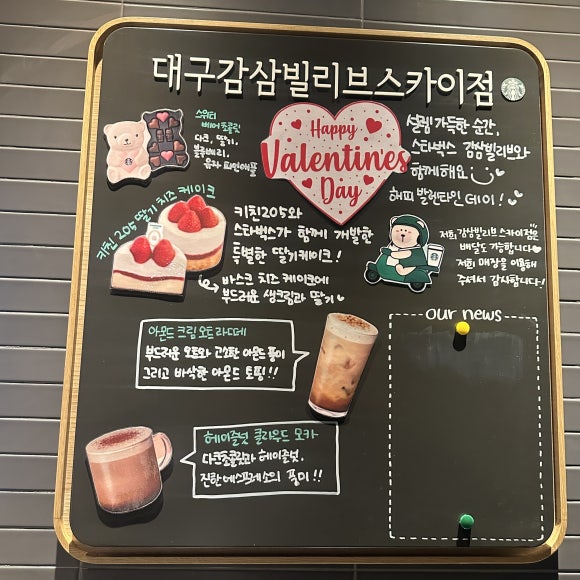 대구감삼빌리브스카이점
스위티
베어 초콜릿
다크, 딸기,
블론베리,
유자 파인애플
Happy
Valentines
Day
설렘 가득한 순간,
스타벅스 감삼빌리브와
함께해요
해피 발렌타인 데이!
키친 205 딸기 치즈 케이크
키친205와
스타벅스가 함께 개발한
특별한 딸기케이크!
바스크 치즈 케이크에
부드러운 생크림과 딸기
저희 감삼빌리브 스카이점은
배달도 가능합니다
저희 매장을 이용해
주셔서 감사합니다!
our news
아몬드 크림 오트 라떼
부드러운 오트와 고소한 아몬드 풍미
그리고 바삭한 아몬드 토핑!!
헤이즐넛 클라우드 모카
다크초콜릿과 헤이즐넛,
진한 에스프레소의 풍미!!